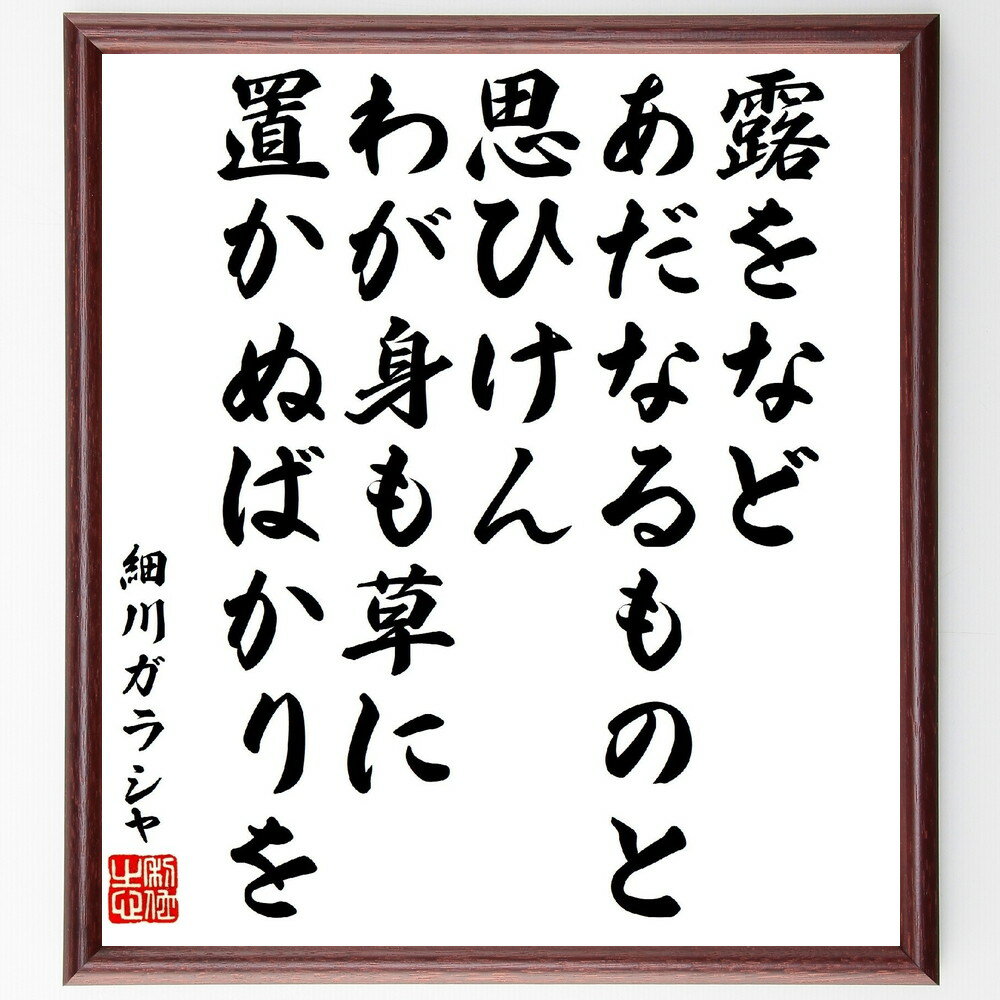 露をなど
あだなるものと
思ひけん
わが身も草に
置かぬばかりを
細川ガラシャ